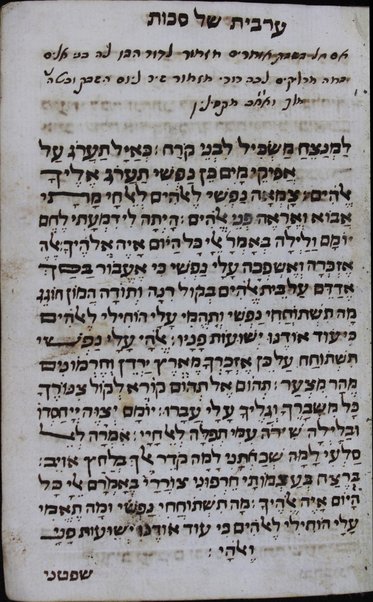 ערבית של סכות
אם חל בשבת אומרים מזמור לדוד הבו לה בני אלים
מזמור שיר ליום השבת
למנצח משכיל לבני קרח: כאיל תערג על
אפיקי מים כן נפשי תערג אליך
אלהים: צמאה נפשי לאלהים לאל חי מתי
אבוא ואראה פני אלהים: היתה לי דמעתי לחם
יומם ולילה באמר אלי כל היום איה אלהיך: אלה
אזכרה ואשפכה עלי נפשי כי אעבור בסך
אדדם על בית אלהים בקול רנה ותודה המון חוגג
מה תשתוחחי נפשי ותהמי עלי הוחילי לאלהים
כי עוד אודנו ישועות פניו: אלהי עלי נפשי
תשתוחח על כן אזכרך מארץ ירדן וחרמונים
מהר מצער: תהום אל תהום קורא לקול צנוריך
כל משבריך וגליך עלי עברו: יומם יצוה יי חסדו
ובלילה שירה עמי תפלה לאל חיי: אמרה לאל
סלעי למה שכחתני למה קדר אלך בלחץ אויב:
ברצח בעצמותי חרפוני צוררי באמרם אלי כל
היום איה אלהיך: מה תשתוחחי נפשי ומה תהמי
עלי הוחילי לאלהים כי עוד אודנו ישועות פני
ואלהי:
שפטני